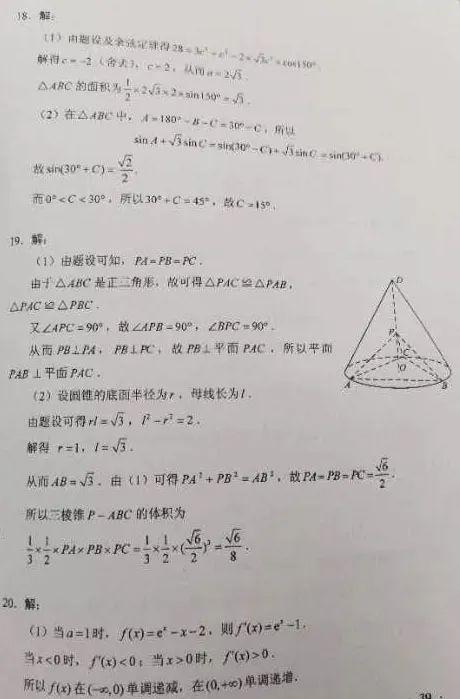 18. 解:
(1)由题设及余弦定理得28=3c²+c²-2×√3c²×cos150°.
解得c=-2(舍去),c=2,从而a=2√3.
△ABC的面积为1/2×2√3×2×sin150°=√3.
(2)在△ABC中,A=180°-B-C=30°-C,所以
sinA+√3sinC=sin(30°-C)+√3sinC=sin(30°+C).
故sin(30°+C)=√2/2.
而0°<C<30°,所以30°+C=45°,故C=15°.
19. 解:
(1)由题设可知,PA=PB=PC.
由于△ABC是正三角形,故可得△PAC≌△PAB,
△PAC≌△PBC.
又∠APC=90°,故∠APB=90°,∠BPC=90°.
从而PB⊥PA,PB⊥PC,故PB⊥平面PAC,所以平面
PAB⊥平面PAC.
D
P
C
O
A
B
(2)设圆锥的底面半径为r,母线长为l.
由题设可得rl=√3,l²-r²=2.
解得 r=1,l=√3.
从而AB=√3.由(1)可得PA²+PB²=AB²,故PA=PB=PC=√6/2.
所以三棱锥P-ABC的体积为
1/3×1/2×PA×PB×PC=1/3×1/2×(√6/2)³=√6/8.
20. 解:
(1)当a=1时,f(x)=eˣ-x-2,则f'(x)=eˣ-1.
当x<0时,f'(x)<0;当x>0时,f'(x)>0.
所以f(x)在(-∞,0)单调递减,在(0,+∞)单调递增.
39